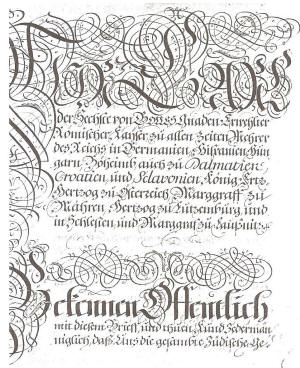 Wir Carl
der Sechste von GOTTES Gnaden Erwehlter
Römischer Kayser zu allen Zeiten Mehrer
des Reichs in Germanien, Hispanien Hun
garn, Böheimb auch zu Dalmatien
Croatien und Sclavonien, König, Ertz
Hertzog zu Österreich Marggraff zu
Mähren, Hertzog zu Lützenburg, und
in Schlesien und Marggraff zu Laußnitz
Bekennen Offentlich
mit diesem Brieff, und thuen Kund Jederman
niglich, daß Uns die gesambte Jüdische Ge